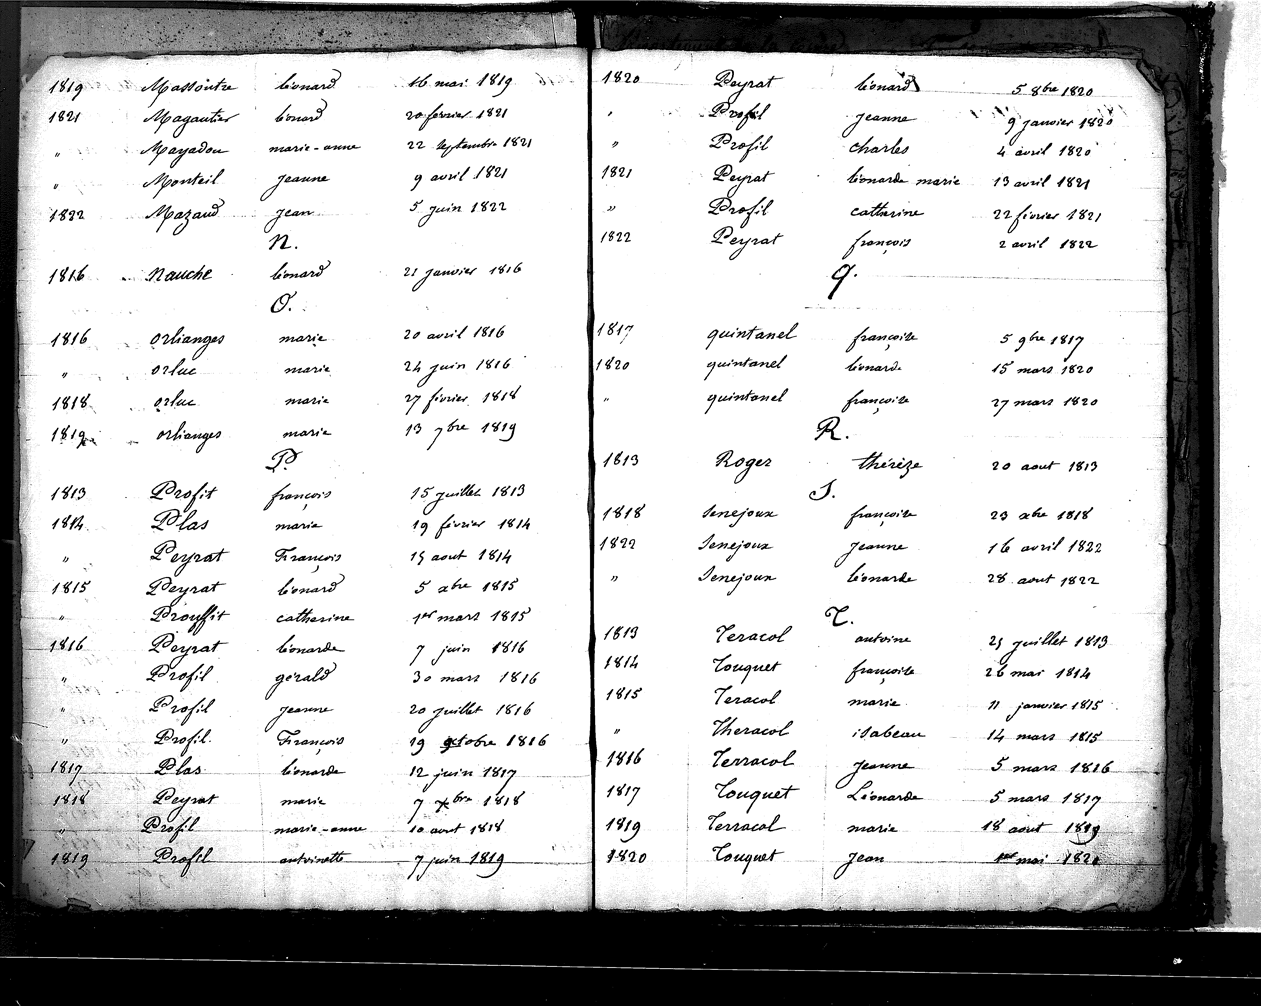 1819 Massoutre léonard 16 mai 1819
1821 Magautier léonard 20 fevrier 1821
" Mayadou marie-anne 22 septembre 1821
" Monteil jeanne 9 avril 1821
1822 Mazaud jean 5 juin 1822
N.
1816 Nauche léonard 21 janvier 1816
O.
1816 orlianges marie 20 avril 1816
" orluc marie 24 juin 1816
1818 orluc marie 27 février 1818
1819 orlianges marie 13 7bre 1819
P.
1813 Profit françois 15 juillet 1813
1814 Plas marie 19 février 1814
" Peyrat François 15 aout 1814
1815 Peyrat léonard 5 xbre 1815
" Prouffit catherine 1er mars 1815
1816 Peyrat léonarde 7 juin 1816
" Profil gérald 30 mars 1816
" Profil jeanne 20 juillet 1816
" Profil François 19 octobre 1816
1817 Plas léonarde 12 juin 1817
1818 Peyrat marie 7 xbre 1818
" Profil marie-anne 10 aout 1818
1819 Profil antoinette 7 juin 1819
1820 Peyrat léonard 5 8bre 1820
" Profil jeanne 9 janvier 1820
" Profil charles 4 avril 1820
1821 Peyrat léonarde marie 13 avril 1821
" Profil catherine 22 février 1821
1822 Peyrat françois 2 avril 1822
Q.
1817 quintanel françoise 5 9bre 1817
1820 quintanel léonarde 15 mars 1820
" quintanel françoise 27 mars 1820
R.
1813 Roger thérèze 20 aout 1813
S.
1818 Senejoux françoise 23 xbre 1818
1822 Senejoux jeanne 16 avril 1822
" Senejoux léonarde 28 aout 1822
T.
1813 Teracol antoine 25 juillet 1813
1814 Touquet françoise 26 mai 1814
1815 Teracol marie 11 janvier 1815
" Theracol isabeau 14 mars 1815
1816 Terracol jeanne 5 mars 1816
1817 Touquet Léonarde 5 mars 1817
1819 Terracol marie 18 aout 1819
1820 Touquet jean 1er mai 1820